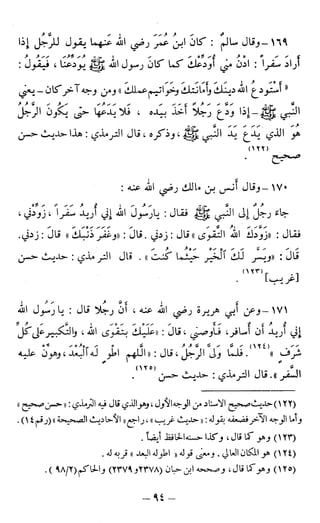 ١٦٩ -وقال سالم : كان ابنُ عُمَر رضي الله عنهما يقول للرَّجل إذا
أرادَ سفَراً : ادْنُ مني أُودِّعْكَ كما كان رسول الله ﷺ يُودِّعُنا، فيَقولُ :
« أَستودعُ اللهَ دِينَكَ وأَمَانَتَكَ وخَواتيمَ عملِك » ومن وجه آخر كان - يعني
النبي ﷺ - إذا وَدَّعَ رَجُلاً أَخَذَ بيده ، فلا يَدَعُها حتى يكونَ الرجُلُ
هُوَ الذي يَدَعُ يَدَ النبيِّ ﷺ، وذكره، قال الترمذي : هذا حديث حسن
صحيح (١٢٢) .
١٧٠ -وقال أنس بن مالك رضي الله عنه :
جاءَ رجُلٌ إلى النَّبي ﷺ فقال : يارَسُولَ الله إني أُريدُ سَفَراً ، زوِّدْني،
فقال : «زوَّدَكَ اللهُ التَّقوى » قال : زِدني . قال : «وغَفَرَ ذَنْبَكَ » قال : زِدني.
قالَ : «ويَسَّر لكَ الخَيْرَ حيثُما كُنتَ » . قال الترمذي : حديث حسن
[غريب](١٢٣) .
١٧١ -وعن أبي هريرة رضي الله عنه ، أنَّ رجُلا قال : يا رَسُولَ الله
إني أُريدُ أن أُسافر، فأَوصني ، قالَ : «عَلَيْكَ بتَقْوَى الله ، والتَّكبيرِ على كلِّ
شَرَفٍ »(١٢٤). فلمَّا ولَّى الرَّجلُ ، قال : « اللهم اطْوِ لَه البُعْدَ ، وهوِّنْ عليه
السَّفَر » . قال الترمذي : حديث حسن (١٢٥) .
(١٢٢) حديث صحيح الاسناد من الوجه الأول ، وهو الذي قال فيه الترمذي : «حسن صحيح »
وأما الوجه الآخر فضعفه بقوله : «حديث غريب»، راجع «الأحاديث الصحيحة» (رقم ١٤) .
(١٢٣) وهو كما قال ، وكذا حسنه الحافظ أيضاً .
(١٢٤) هو المكان العالي . ومعنى قوله « اطو له البعد » قربه له .
(١٢٥) وهو كما قال، وصححه ابن حبان (٢٣٧٨ و ٢٣٧٩) والحاكم (٩٨/٢) .
- ٩٤ -